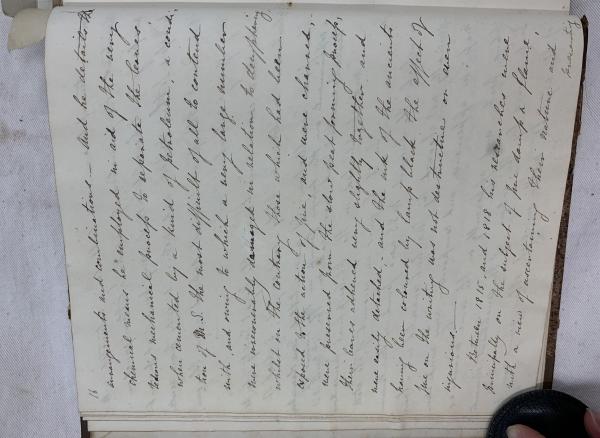 16
arrangements and combinations — And he details the
chemical means he employed in aid of the very
tedious mechanical process to separate the leaves
when cemented by a kind of Petroleum; a condi-
tion of M.S. the most difficult of all to contend
with, and owing to which a very large number
were irrecoverably damaged in relation to decyphering
whilst on the contrary those which had been
exposed to the action of fire and were charred,
were preserved from the slow peat forming process,
their leaves adhered very slightly together and
were easily detached: and the ink of the ancients
having been coloured by lamp black the effect of
fire on the writing was not destructive on even
injurious. —
Between 1815 and 1818 his researches were
principally on the subject of fire damp & flame,
with a view of ascertaining their nature and